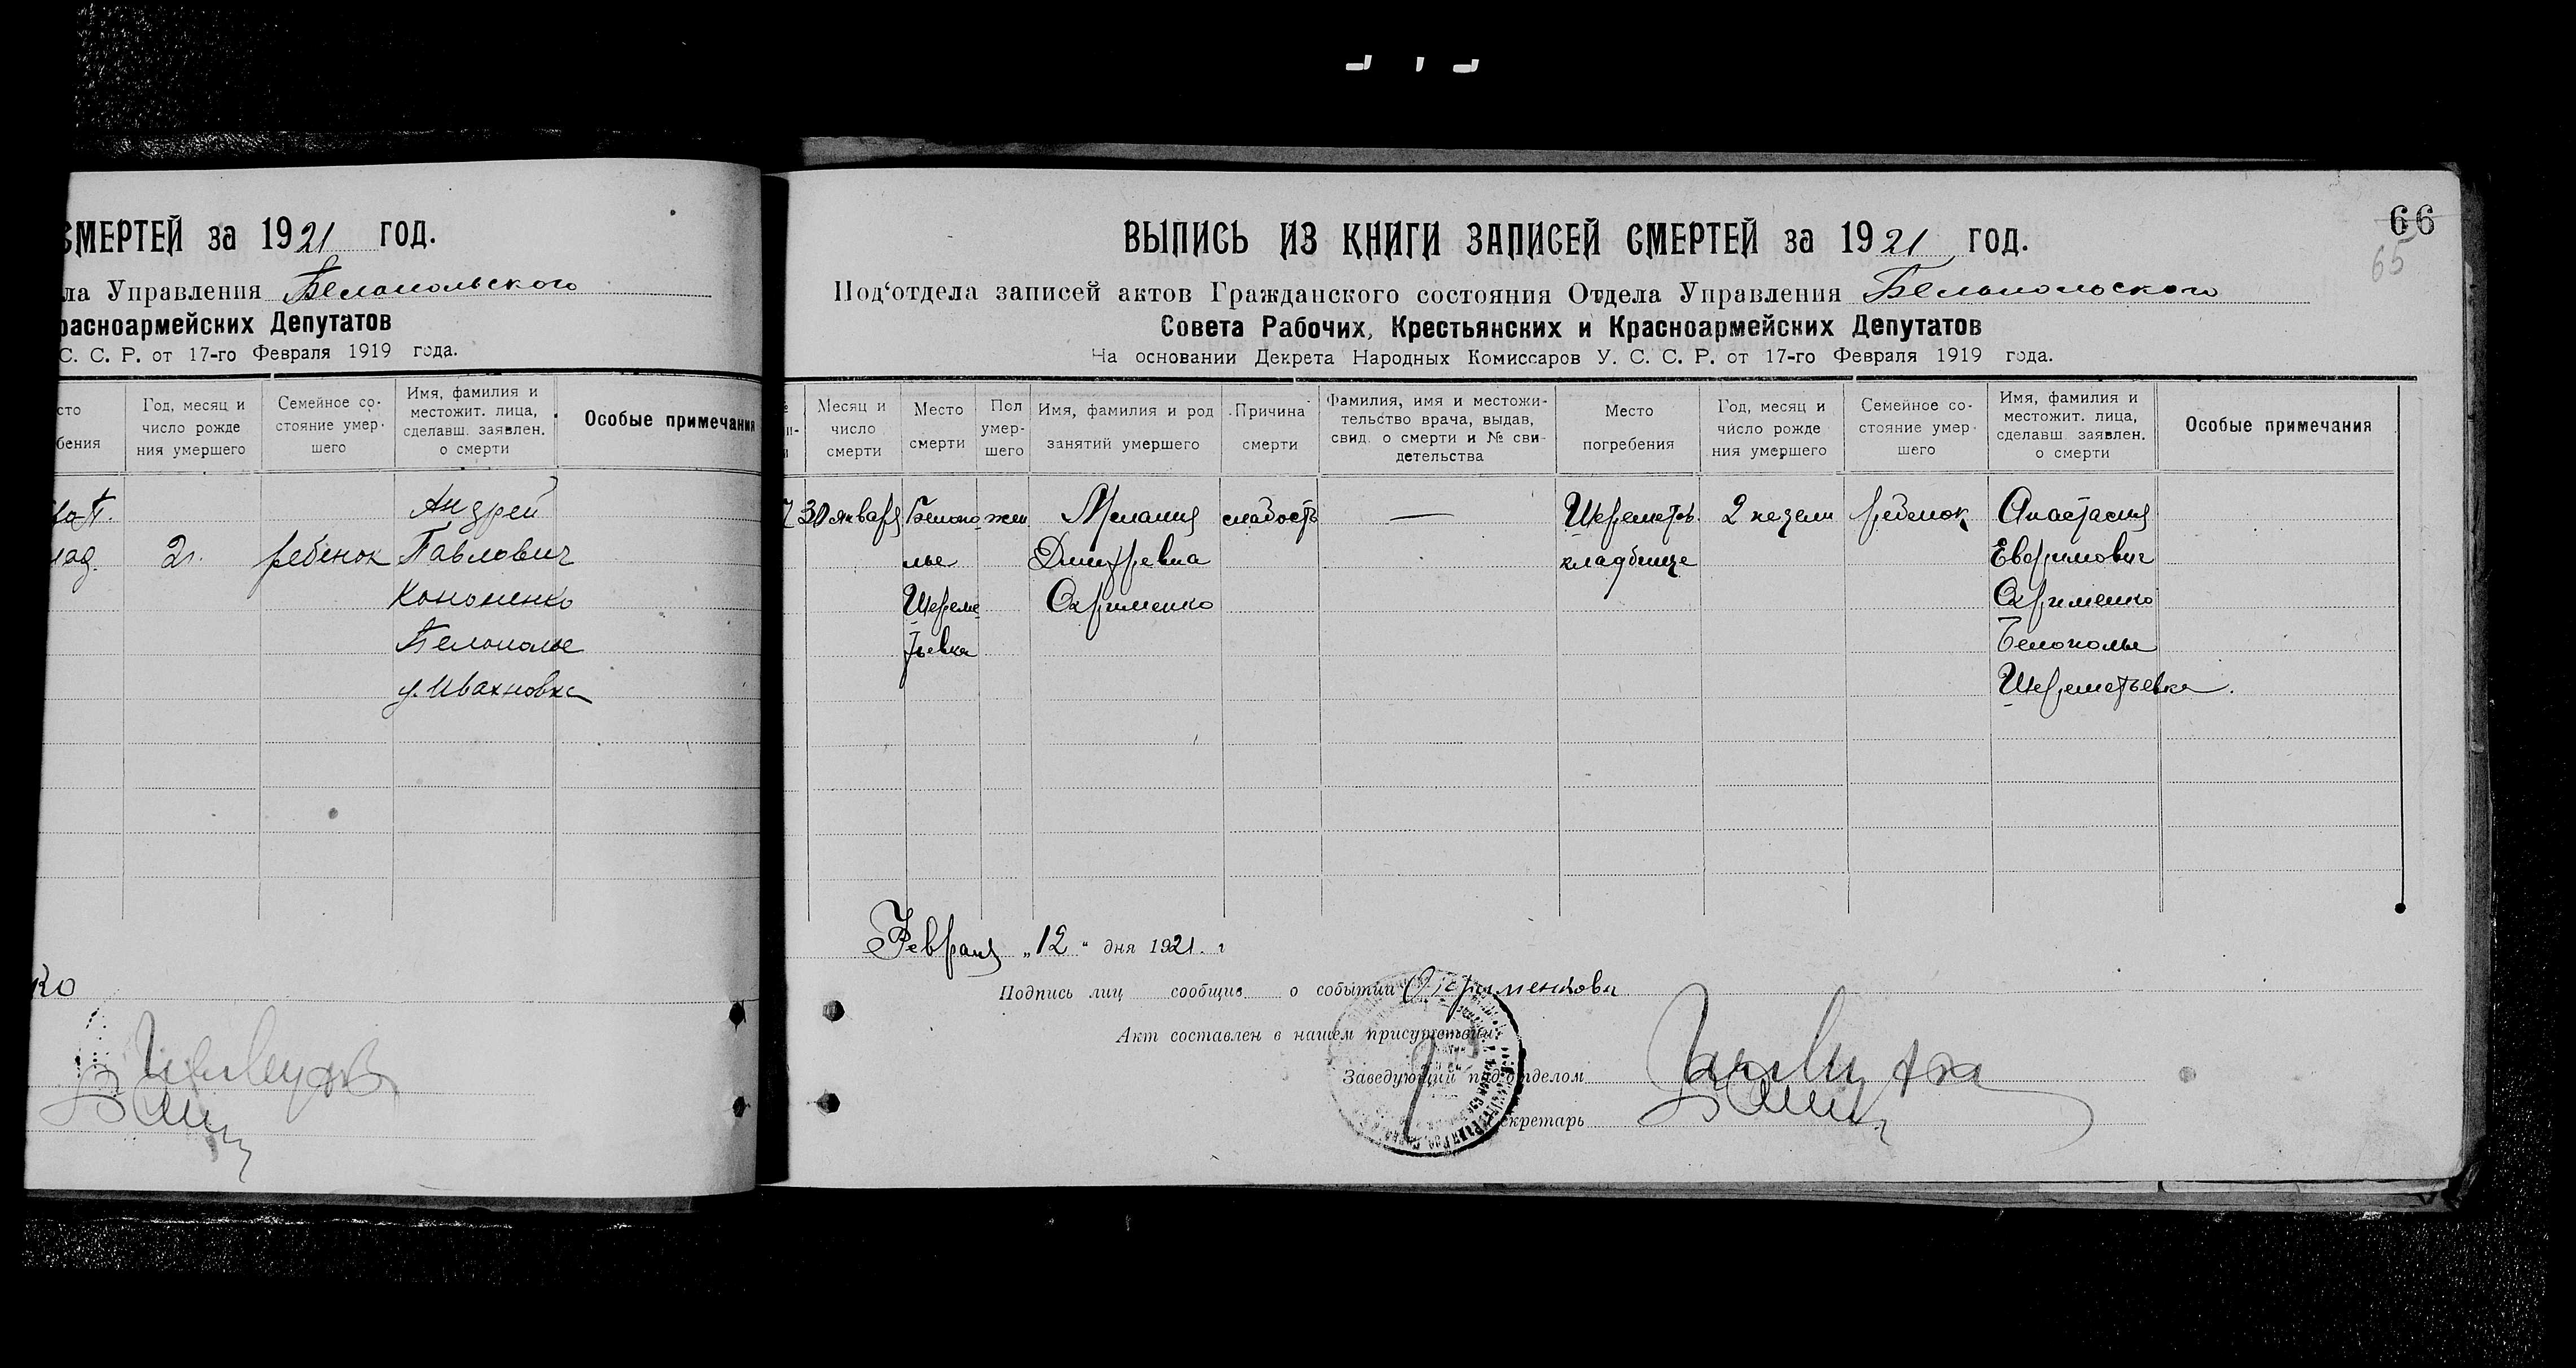 СМЕРТЕЙ за 1921 год.
Управления Белопольского
Красноармейских Депутатов
С. С. Р. от 17-го Февраля 1919 года.
Год, месяц и число рожде ния умершего
Семейное со- стояние умер- шего
Имя, фамилия и местожит. лица, сделавш. заявлен. о смерти
Особые примечания
Андрей
2 г. ребенок Павлович
Кононенко
Белополье
у. Ивахновка
66
65
ВЫПИСЬ ИЗ КНИГИ ЗАПИСЕЙ СМЕРТЕЙ за 1921 год.
Под‘отдела записей актов Гражданского состояния Отдела Управления Белопольского
Совета Рабочих, Крестьянских и Красноармейских Депутатов
На основании Декрета Народных Комиссаров У. С. С. Р. от 17-го Февраля 1919 года.
Месяц и число смерти
Место смерти
Пол умер- шего
Имя, фамилия и род занятий умершего
Причина смерти
Фамилия, имя и местожи- тельство врача, выдав, свид. о смерти и № сви- детельства
Место погребения
Год, месяц и число рожде ния умершего
Семейное со- стояние умер- шего
Имя, фамилия и местожит. лица, сделавш. заявлен. о смерти
Особые примечания
30 января Белопо жен Мелания слабость — Шереметов. 2 недели ребенок Анастасия
лье Дмитревна кладбище
Шереме Охрименко Охрименко
тьевка Белополье
Шереметьевка.
Февраля „12“ дня 1921. г
Подпись лиц сообщив о событии
Акт составлен в нашем присутствии:
Заведующий под‘отделом
Секретарь